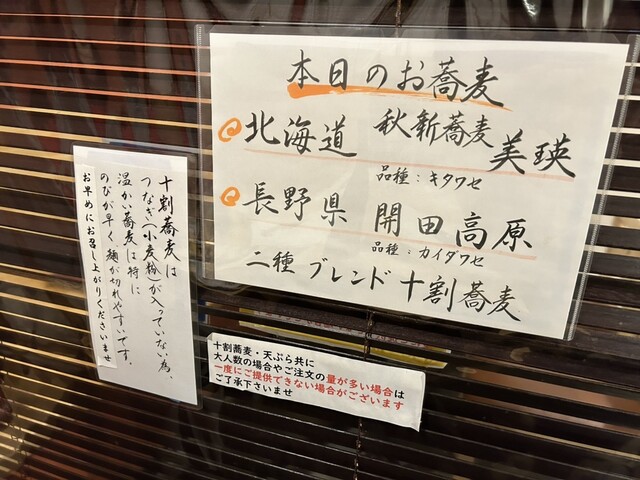 本日のお蕎麦
北海道 秋新蕎麦 美瑛
品種：キタワセ
長野県 開田高原
品種：カイダワセ
二種 ブレンド 十割蕎麦
十割蕎麦は
つなぎ(小麦粉)が入っていない為、
温かい蕎麦は特に
のびが早く、麺が切れやすいです。
お早めにお召し上がりくださいませ
十割蕎麦・天ぷら共に
大人数の場合やご注文の量が多い場合は
一度にご提供できない場合がございます
ご了承下さいませ